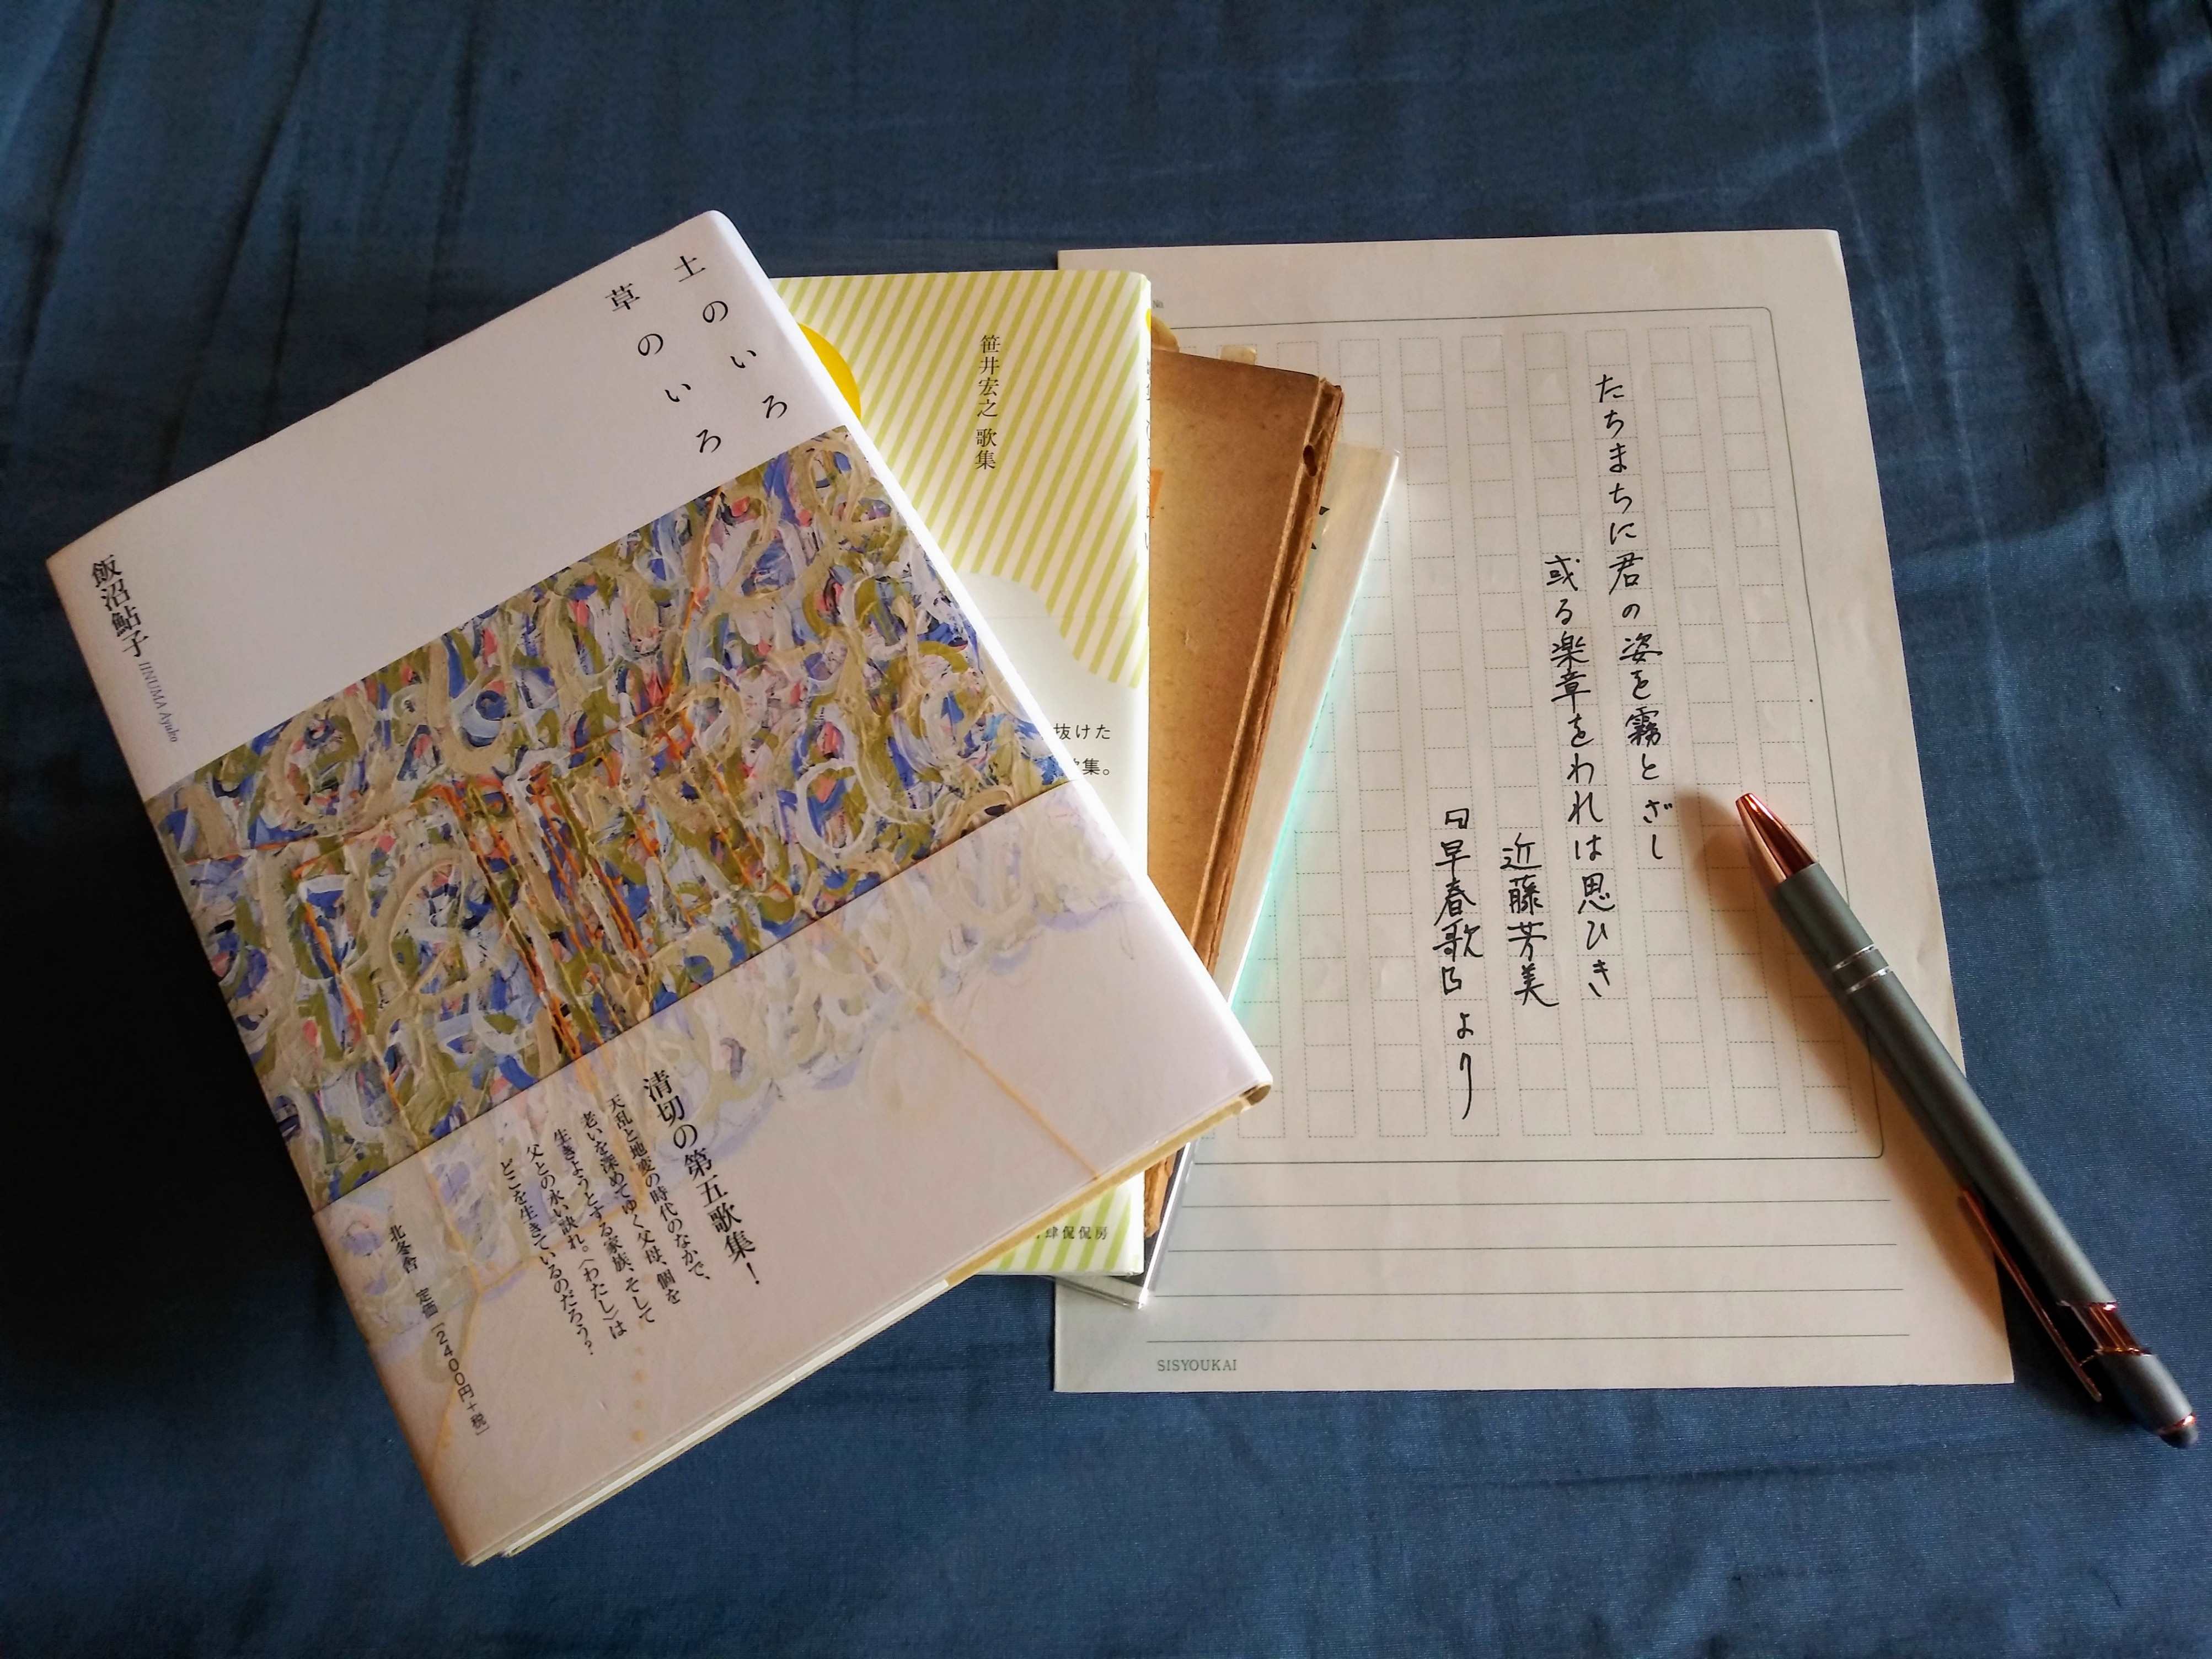 土のいろ
草のいろ
飯沼鮎子
IINUMA Ayuko
清切の第五歌集!
天乱と地変の時代のなかで、
老いを深めてゆく父母、個を
生きようとする家族、そして
父との永い訣れ。〈わたし〉は
どこを生きているのだろう?
北冬舎 定価[2400円+税]
笹井宏之 歌集
抜けた
集。
肆侃侃房
No
たちまちに君の姿を霧とざし
或る楽章をわれは思ひき
近藤芳美
『早春歌』より
SISYOUKAI